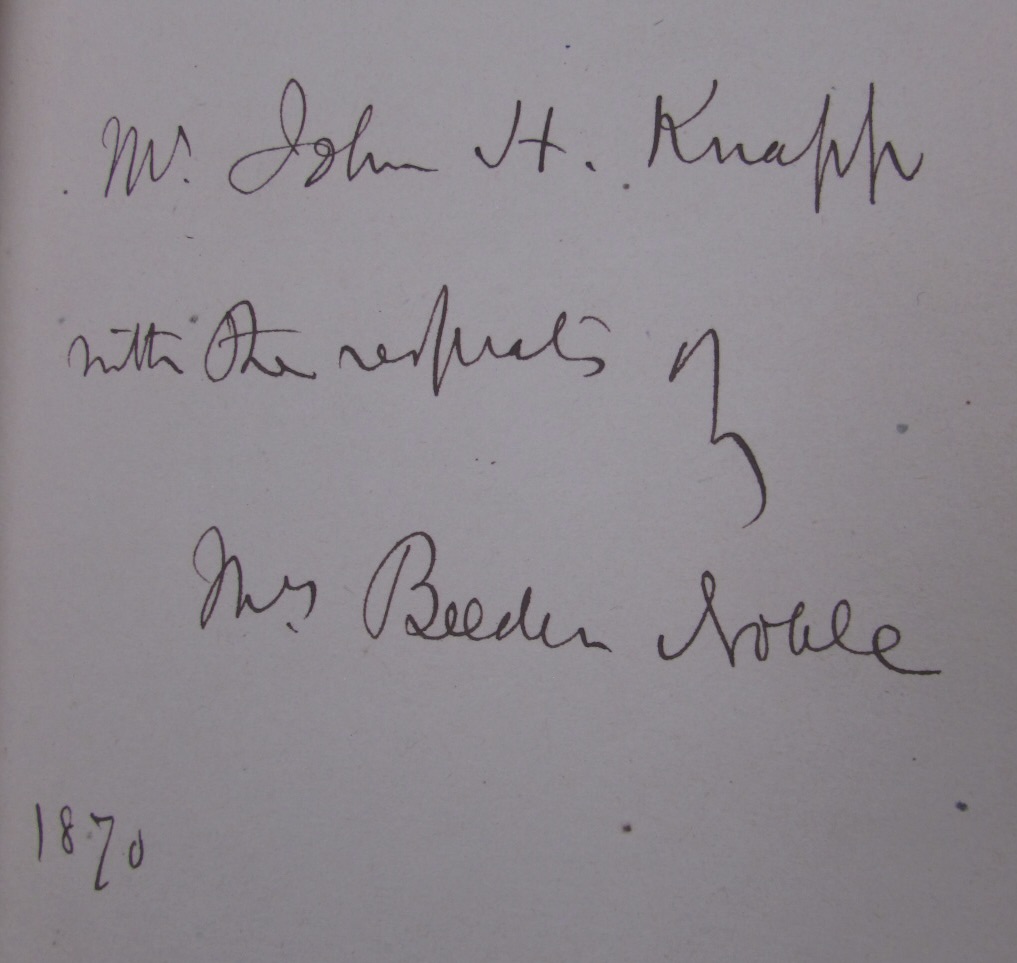 Mr. John H. Knapp
with the respects of
Mrs Beeden Noble
1870